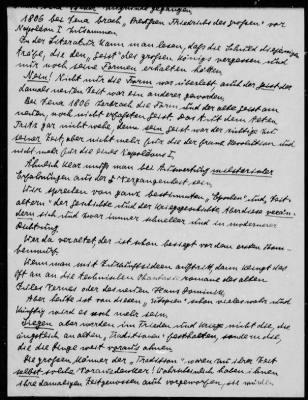 1806 bei Jena brach, Preußen Friedrichs des großen vor
Napoleon I zusammen.
In der Literatur kann man lesen, daß die Schuld diejenigen
träfe, die den „Geist" des großen Königs vergessen und
nur noch seine Formen erhalten hätten
Nein! Nicht nur die Form war veraltet, auch der Geist der
damals neuen Zeit war ein anderer geworden.
Bei Jena 1806 zerbrach die Form und der alte Geist am
neuen, noch nicht erfaßten Geist der Zeit. Dem alten
Fritz gar nicht wehe, denn sein Geist war der richtige zu
seiner Zeit, aber nicht mehr für die der franz. Revolution und
nicht mehr für die eines Napoleons I.
Ähnlich klar muß man bei Auswertung militärischer
Erfahrungen aus der Vergangenheit sein
Wir sprechen von ganz bestimmten „Epochen" und „Zeit-
altern" der Geschichte und der Kriegsgeschichte. Aber diese verän-
dern sich und zwar immer schneller und in modernerer
Richtung.
Wer da veraltet, der ist schon besiegt vor dem ersten Kano-
nenwurf.
Wenn man mit Zukunftsideen auftritt, dann klingt das
oft an an die technischen Phantasieromane des alten
Jules Vernes oder des neuen Hans Dominik.
Aber heute ist von diesen „Utopien" schon vieles wahr und
künftig wird es noch mehr sein
Siegen aber werden im Frieden und Kriege nicht die, die
ängstlich an alten „Traditionen" festhalten, sondern die,
die die Dinge weit voraus ahnen.
Die großen Männer der „Tradition" waren zu ihrer Zeit
selbst solche Vorausdenker! Wahrscheinlich haben ihnen
ihre damaligen Zeitgenossen auch vorgeworfen, sie würden